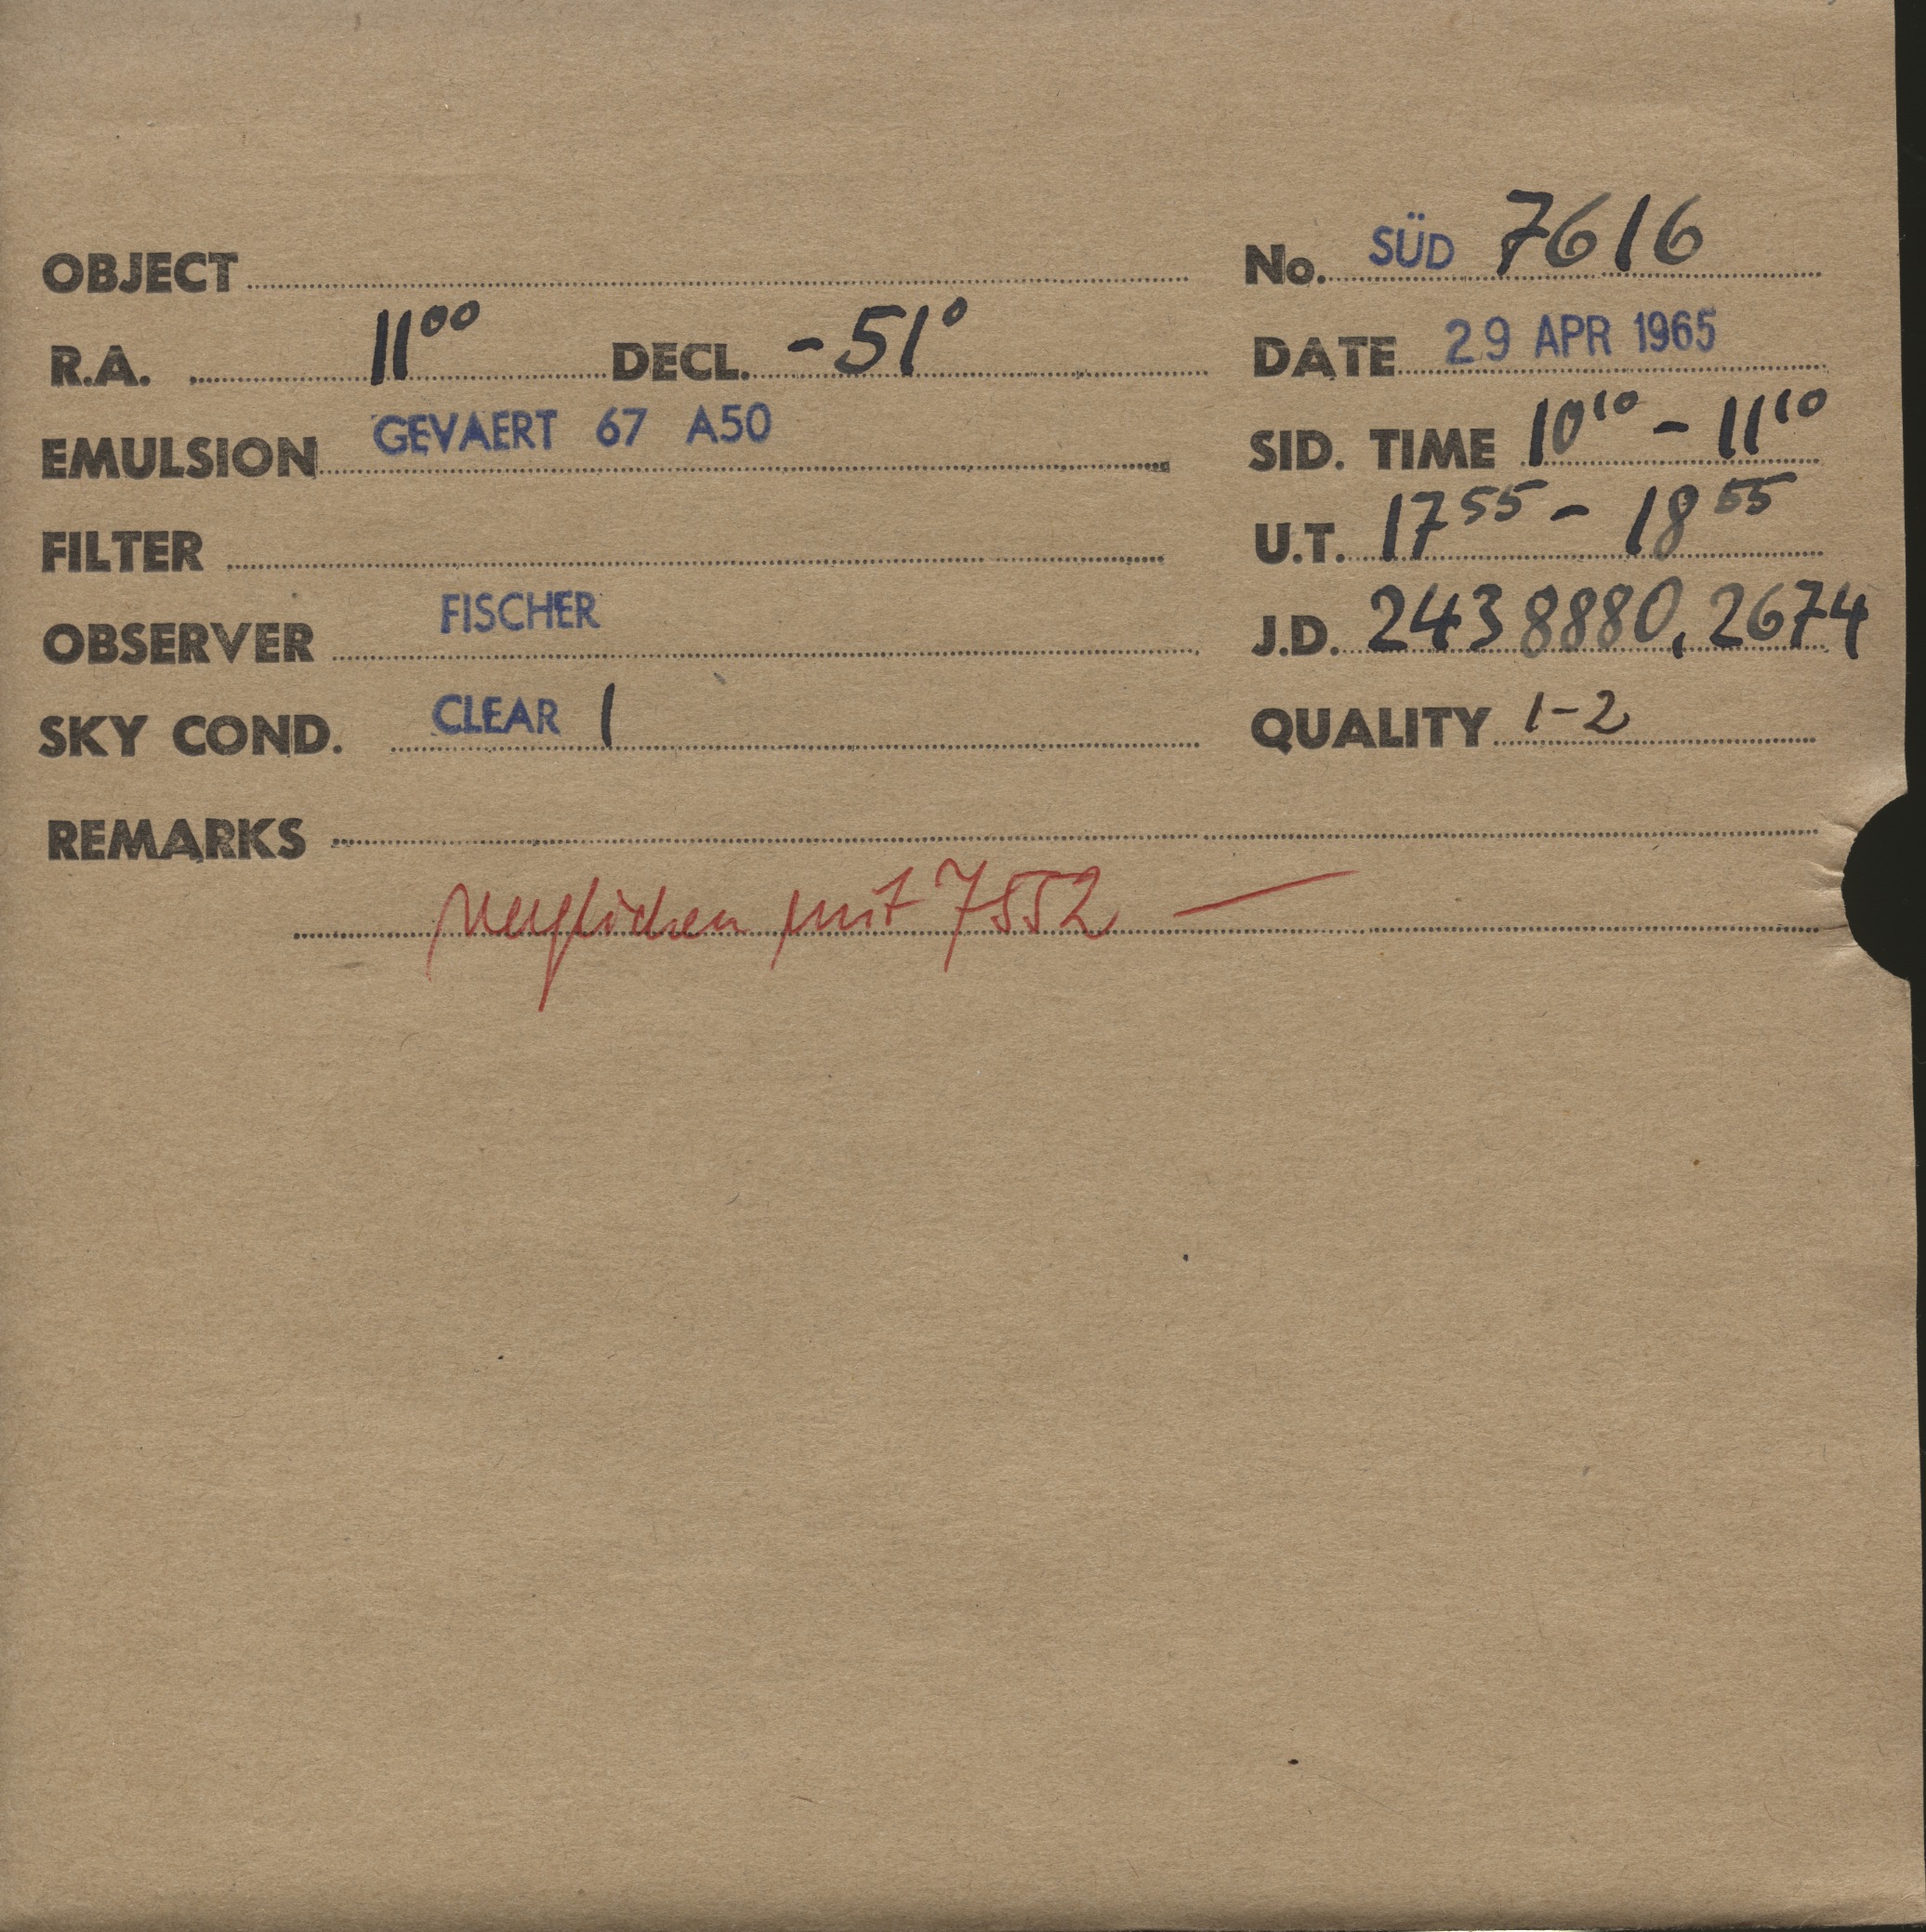 OBJECT No. SÜD 7616
R.A. 11⁰⁰ DECL. -51° DATE 29 APR 1965
EMULSION GEVAERT 67 A50 SID. TIME 10¹⁰ - 11¹⁰
FILTER U.T. 17⁵⁵ - 18⁵⁵
OBSERVER FISCHER J.D. 243 8880,2674
SKY COND. CLEAR 1 QUALITY 1-2
REMARKS
verglichen mit 7552 —